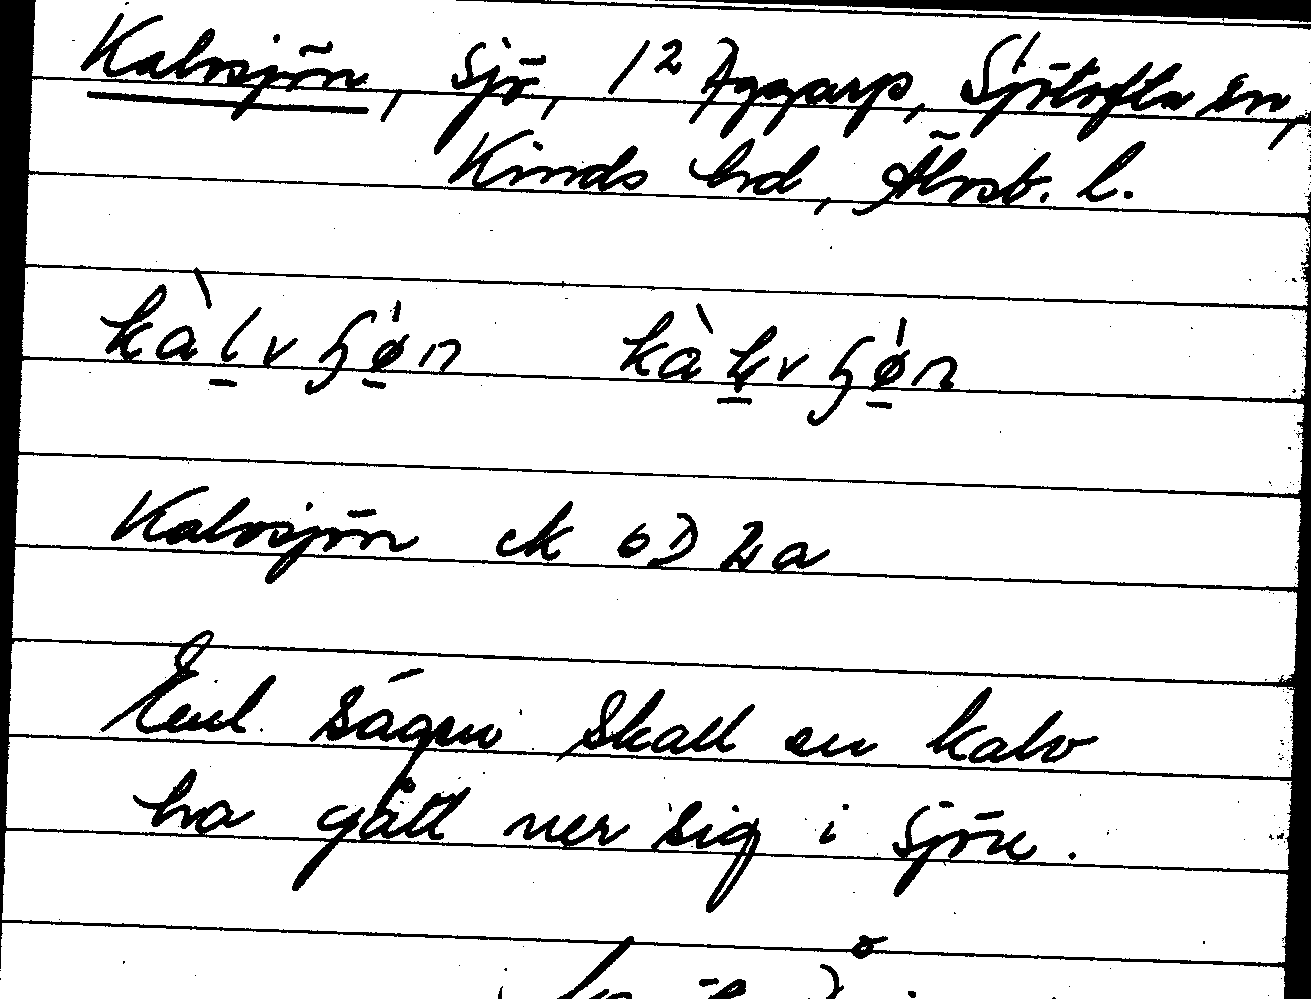 Kalvsjön, sjö, 1² Aggarp, Sjötofta sn,
Kinds hd, Älvsb. l.
kàlvʃø̀n kàlvʃø̀n
Kalvsjön ek 6D 4a
Enl. sägen skall en kalv
ha gått ner sig i sjön.